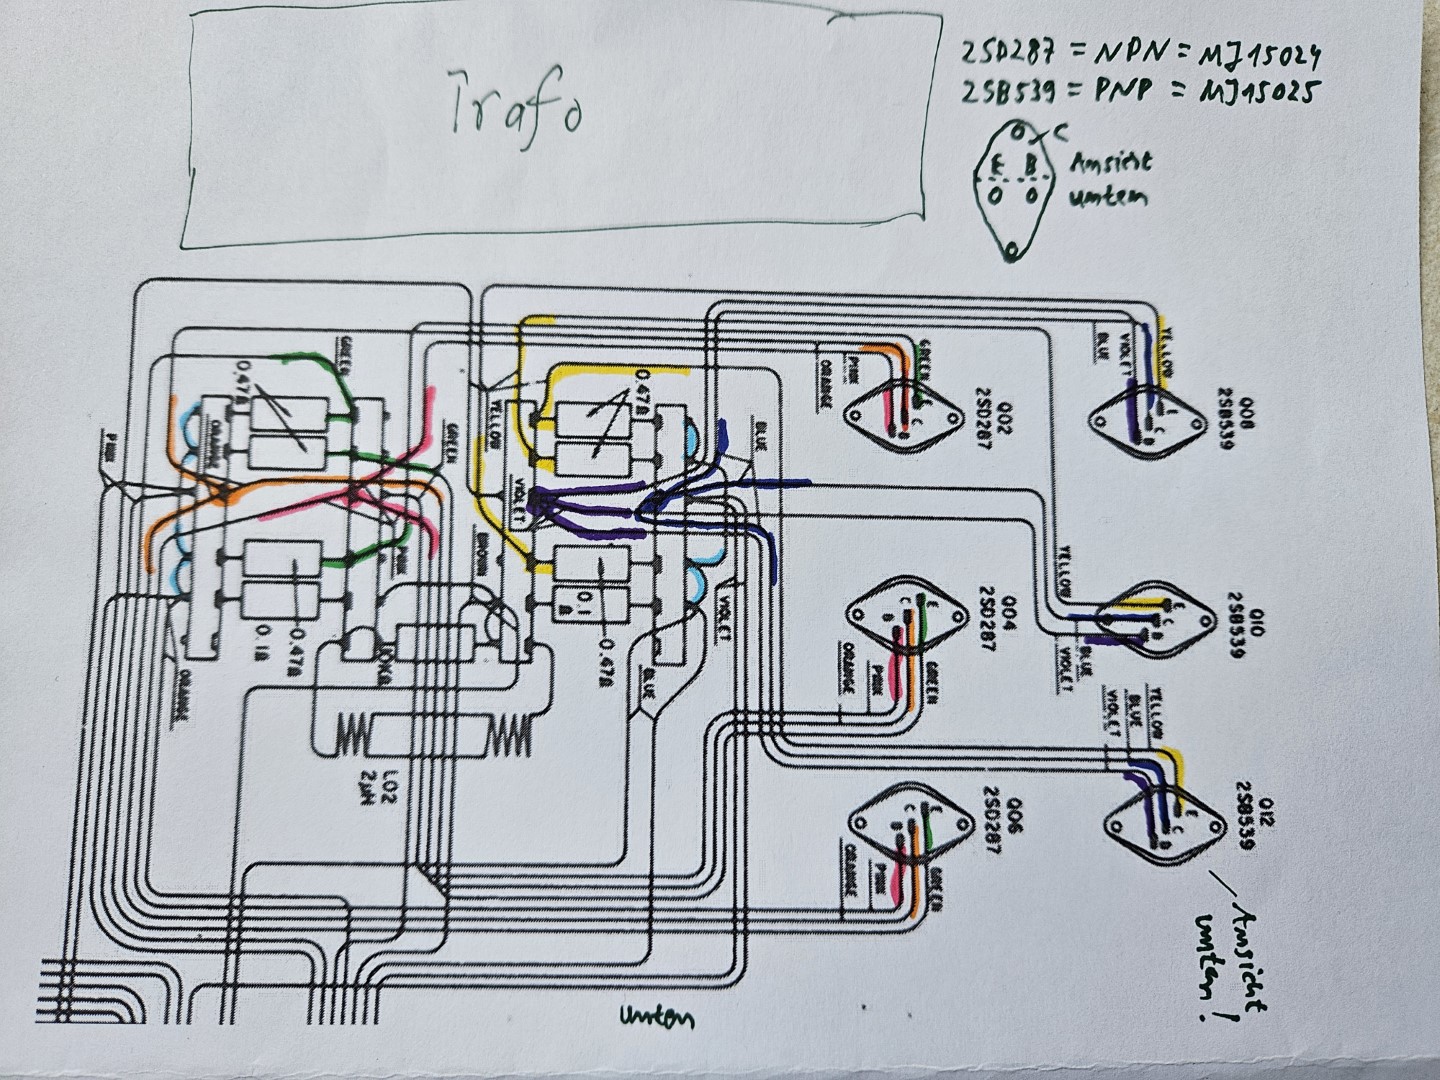 Trafo
2SD287 = NPN = MJ15024
2SB539 = PNP = MJ15025
C
E B
Ansicht
unten
GREEN
0.47Ω
ORANGE
PINK
GREEN
PINK
0.47Ω
0.1Ω
ORANGE
YELLOW
0.47Ω
BLUE
VIOLET
BROWN
0.1
Ω
0.47Ω
VIOLET
BLUE
LO2
2µH
GREEN
PINK
ORANGE
Q02
2SD287
E
C
B
YELLOW
VIOLET
BLUE
Q08
2SB539
E
C
B
Q04
2SD287
E
C
B
GREEN
PINK
ORANGE
YELLOW
BLUE
VIOLET
Q10
2SB539
E
C
B
Q06
2SD287
E
C
B
GREEN
PINK
ORANGE
YELLOW
BLUE
VIOLET
Q12
2SB539
E
C
B
Ansicht
unten!
unten